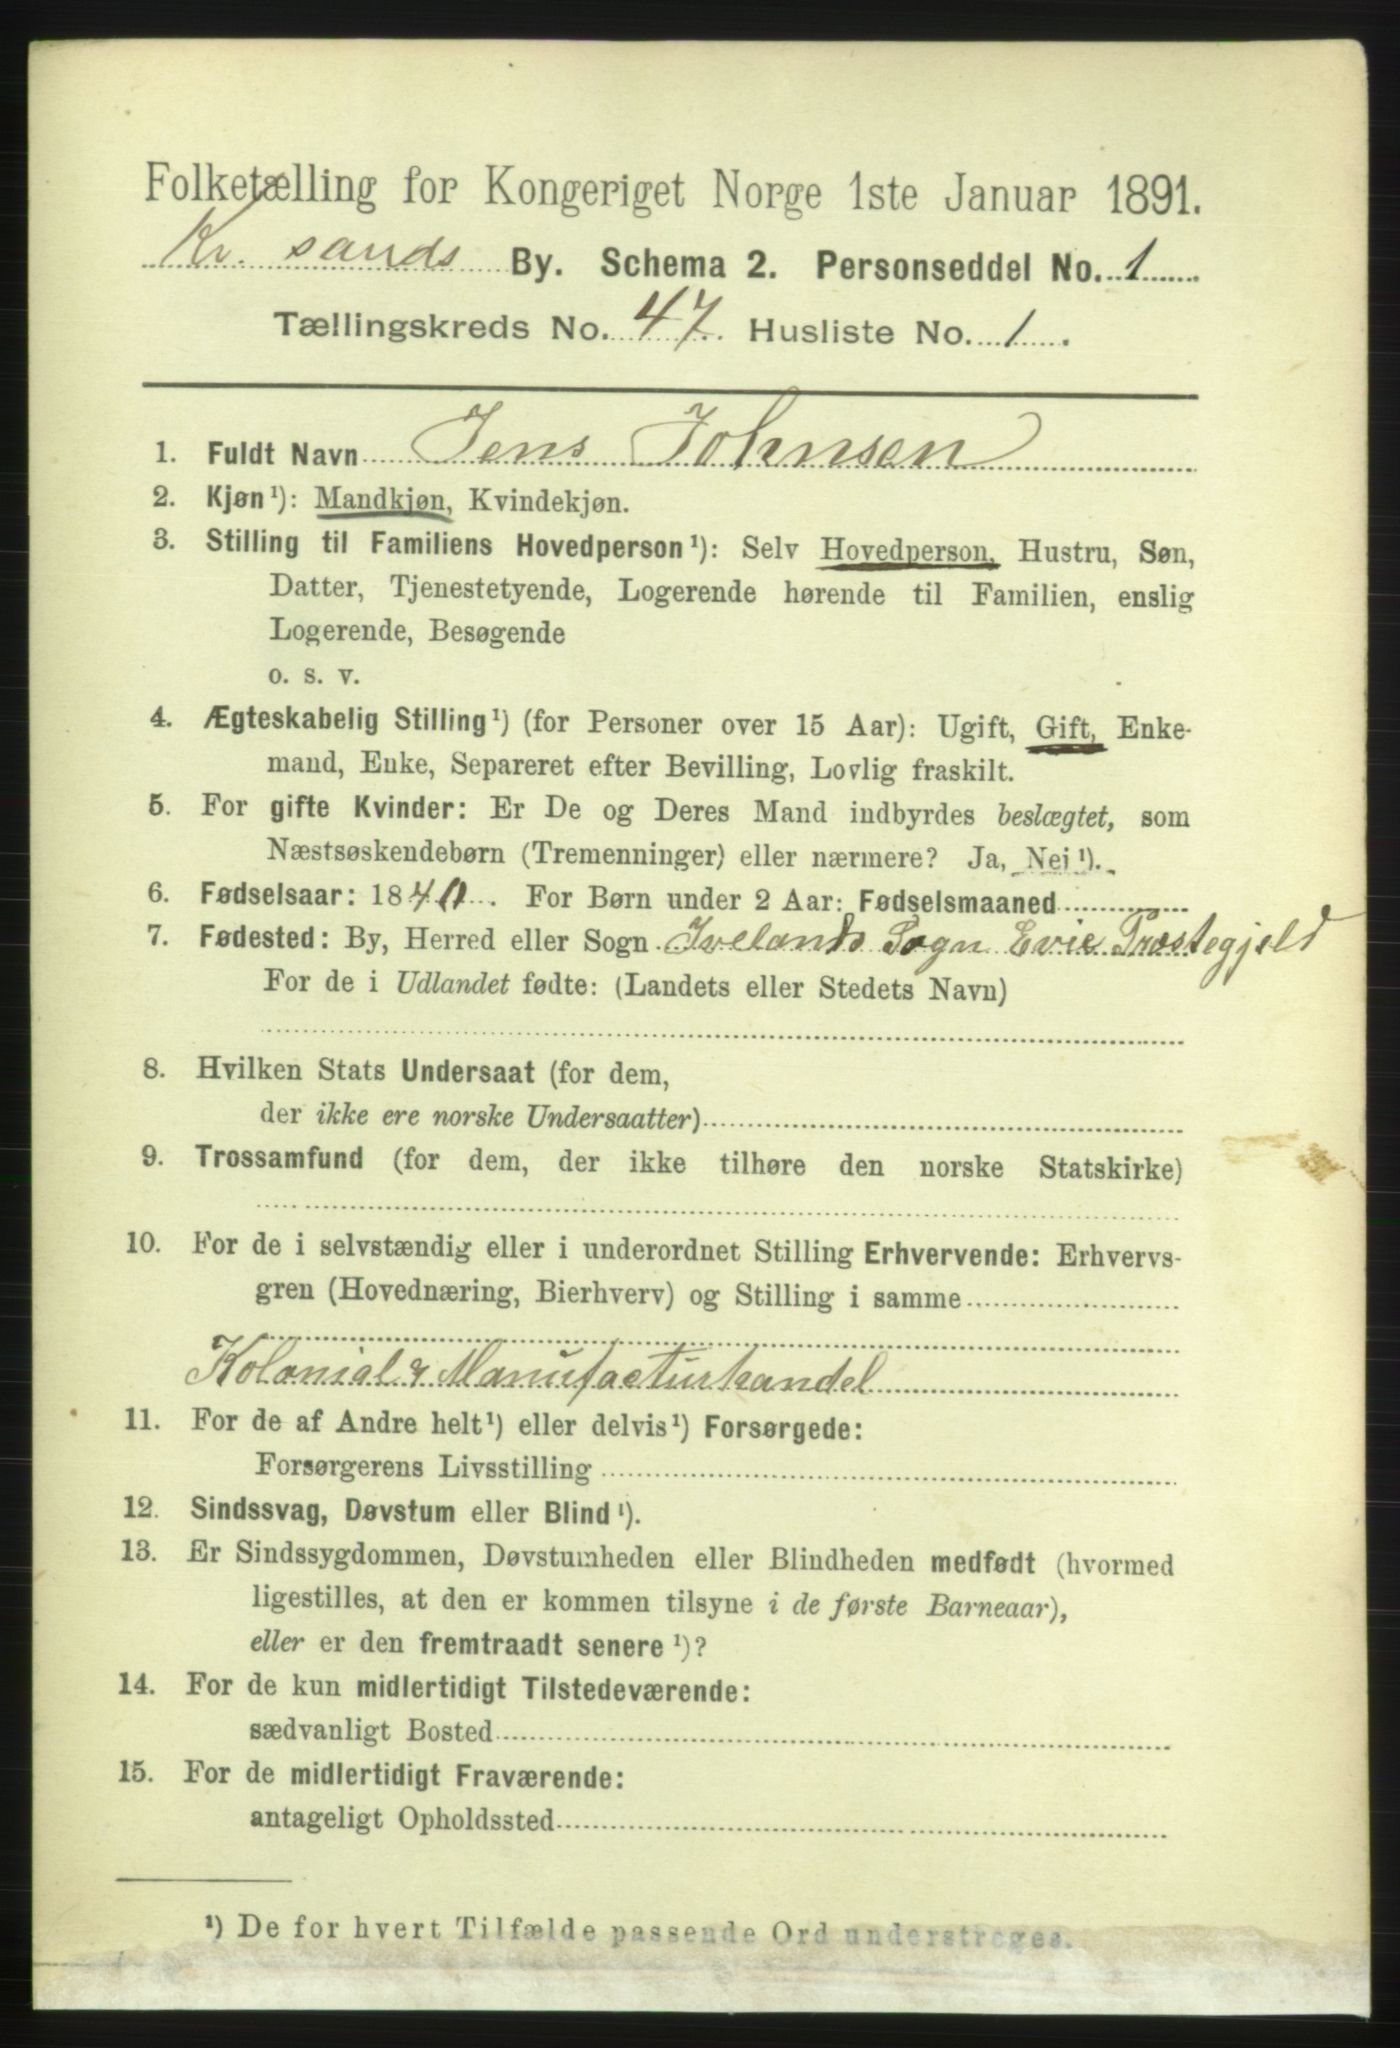 Folketælling for Kongeriget Norge 1ste Januar 1891.
Kr. sands By. Schema 2. Personseddel No. 1
Tællingskreds No. 47. Husliste No. 1.
1. Fuldt Navn Jens Johnsen
2. Kjøn¹): Mandkjøn, Kvindekjøn.
3. Stilling til Familiens Hovedperson¹): Selv Hovedperson, Hustru, Søn,
Datter, Tjenestetyende, Logerende hørende til Familien, enslig
Logerende, Besøgende
o. s. v.
4. Ægteskabelig Stilling¹) (for Personer over 15 Aar): Ugift, Gift, Enke-
mand, Enke, Separeret efter Bevilling, Lovlig fraskilt.
5. For gifte Kvinder: Er De og Deres Mand indbyrdes beslægtet, som
Næstsøskendebørn (Tremenninger) eller nærmere? Ja, Nei¹).
6. Fødselsaar: 1840. For Børn under 2 Aar: Fødselsmaaned
7. Fødested: By, Herred eller Sogn Ivelands Sogn Evie Præstegjeld
For de i Udlandet fødte: (Landets eller Stedets Navn)
8. Hvilken Stats Undersaat (for dem,
der ikke ere norske Undersaatter)
9. Trossamfund (for dem, der ikke tilhøre den norske Statskirke)
10. For de i selvstændig eller i underordnet Stilling Erhvervende: Erhvervs-
gren (Hovednæring, Bierhverv) og Stilling i samme
Kolonial & Manufacturhandel
11. For de af Andre helt¹) eller delvis¹) Forsørgede:
Forsørgerens Livsstilling
12. Sindssvag, Døvstum eller Blind¹).
13. Er Sindssygdommen, Døvstumheden eller Blindheden medfødt (hvormed
ligestilles, at den er kommen tilsyne i de første Barneaar),
eller er den fremtraadt senere¹)?
14. For de kun midlertidigt Tilstedeværende:
sædvanligt Bosted
15. For de midlertidigt Fraværende:
antageligt Opholdssted
¹) De for hvert Tilfælde passende Ord understreges.